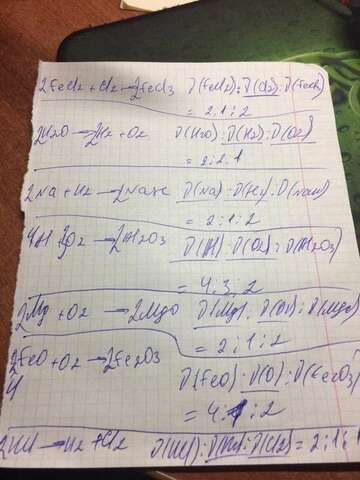 2FeCl2 + Cl2 → 2FeCl3 D(FeCl2) : D(Cl2) : D(FeCl3)
= 2 : 1 : 2
2H2O → 2H2 + O2 D(H2O) : D(H2) : D(O2)
= 2 : 2 : 1
2Na + H2 → 2NaH D(Na) : D(H2) : D(NaH)
= 2 : 1 : 2
4Al 3O2 → 2Al2O3 D(Al) : D(O2) : D(Al2O3)
= 4 : 3 : 2
2Mg + O2 → 2MgO D(Mg) : D(O2) : D(MgO)
= 2 : 1 : 2
2FeO + O2 → 2Fe2O3
4 D(FeO) : D(O) : D(Fe2O3)
= 4 : 1 : 2
2HCl → H2 + Cl2 D(HCl) : D(H2) : D(Cl2) = 2 : 1 :